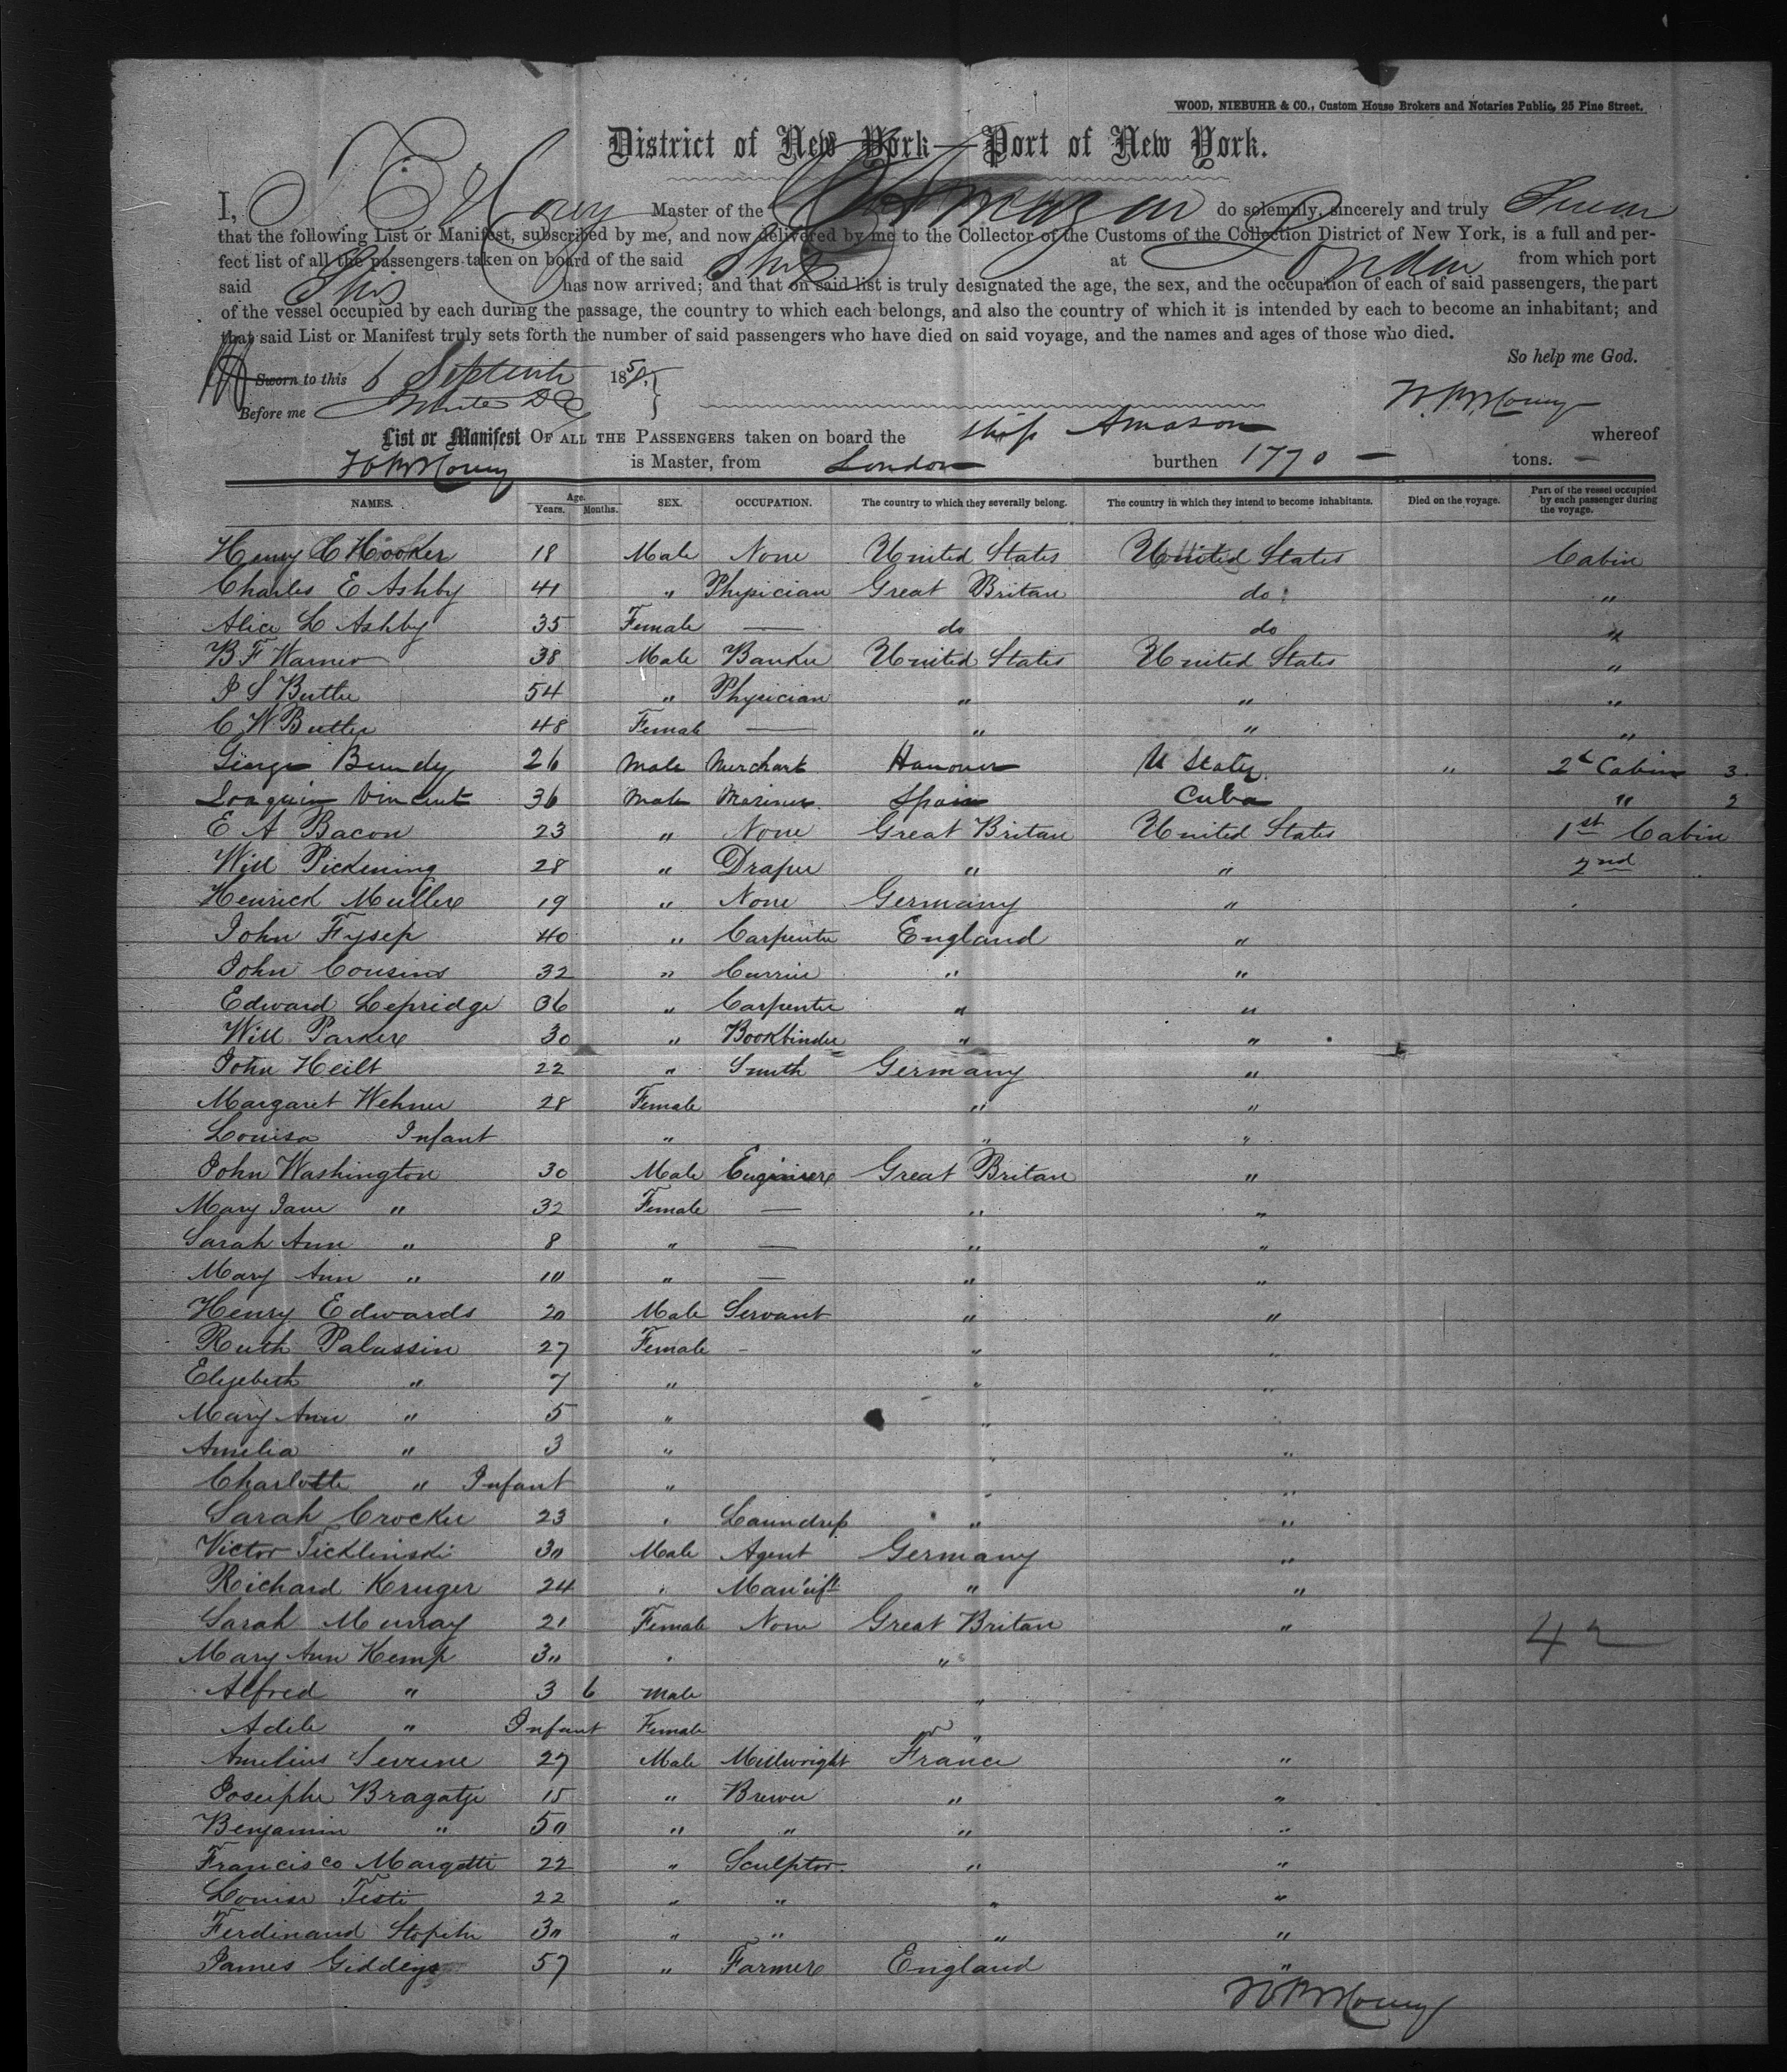 WOOD, NIEBUHR & CO., Custom House Brokers and Notaries Public, 25 Pine Street.
District of New York—Port of New York.
I, Master of the Amazon do solemnly, sincerely and truly Swear
that the following List or Manifest, subscribed by me, and now delivered by me to the Collector of the Customs of the Collection District of New York, is a full and per-
fect list of all the passengers taken on board of the said Ship at London from which port
said Ship has now arrived; and that on said list is truly designated the age, the sex, and the occupation of each of said passengers, the part
of the vessel occupied by each during the passage, the country to which each belongs, and also the country of which it is intended by each to become an inhabitant; and
that said List or Manifest truly sets forth the number of said passengers who have died on said voyage, and the names and ages of those who died.
So help me God.
Sworn to this 6 Septemb 185
Before me
List or Manifest OF ALL THE PASSENGERS taken on board the ship Amason whereof
is Master, from London burthen 1770 — tons. —
NAMES. Age. Years. Months. SEX. OCCUPATION. The country to which they severally belong. The country in which they intend to become inhabitants. Died on the voyage. Part of the vessel occupied by each passenger during the voyage.
Henry C Hooker 18 Male None United States United States Cabin
Charles E Ashby 41 " Physician Great Britan do "
Alice L Ashby 35 Female — do do "
B F Warner 38 Male Banker United States United States "
J S Butler 54 " Physician " " "
C W Butler 48 Female — " " "
George Bundy 26 Male Merchant Hanover U States " 2d Cabin 3
Joaquin Vincent 36 Male Mariner Spain Cuba " 2
E A Bacon 23 " None Great Britan United States 1st Cabin
Will Pickening 28 " Draper " " 2nd
Henrick Muller 19 " None Germany "
John Fysep 40 " Carpenter England "
John Cousins 32 " Currier " "
Edward Lepridge 36 " Carpenter " "
Will Parker 30 " Bookbinder " "
John Heilt 22 " Smith Germany "
Margaret Wehner 28 Female " "
Louisa Infant " " "
John Washington 30 Male Engineer Great Britan "
Mary Jane " 32 Female — " "
Sarah Ann " 8 " — " "
Mary Ann " 10 " — " "
Henry Edwards 20 Male Servant " "
Ruth Palassin 27 Female - " "
Elizebeth " 7 " " "
Mary Ann " 5 " " "
Amelia " 3 " " "
Charlotte " Infant " " "
Sarah Crocker 23 " Laundress " "
Victor Ticklinski 30 Male Agent Germany "
Richard Kruger 24 " " "
Sarah Murray 21 Female None Great Britan " 42
Mary Ann Kemp 30 " "
Alfred " 3 6 Male "
Adele " Infant Female "
Aurelius Severne 27 Male Millwright France "
Joseiphe Bragatje 15 " Brewer " "
Benjamin " 50 " " " "
Francisco Margotti 22 " Sculptor " "
Louise Testi 22 " " " "
Ferdinand 30 " " " "
James Giddings 57 " Farmer England "